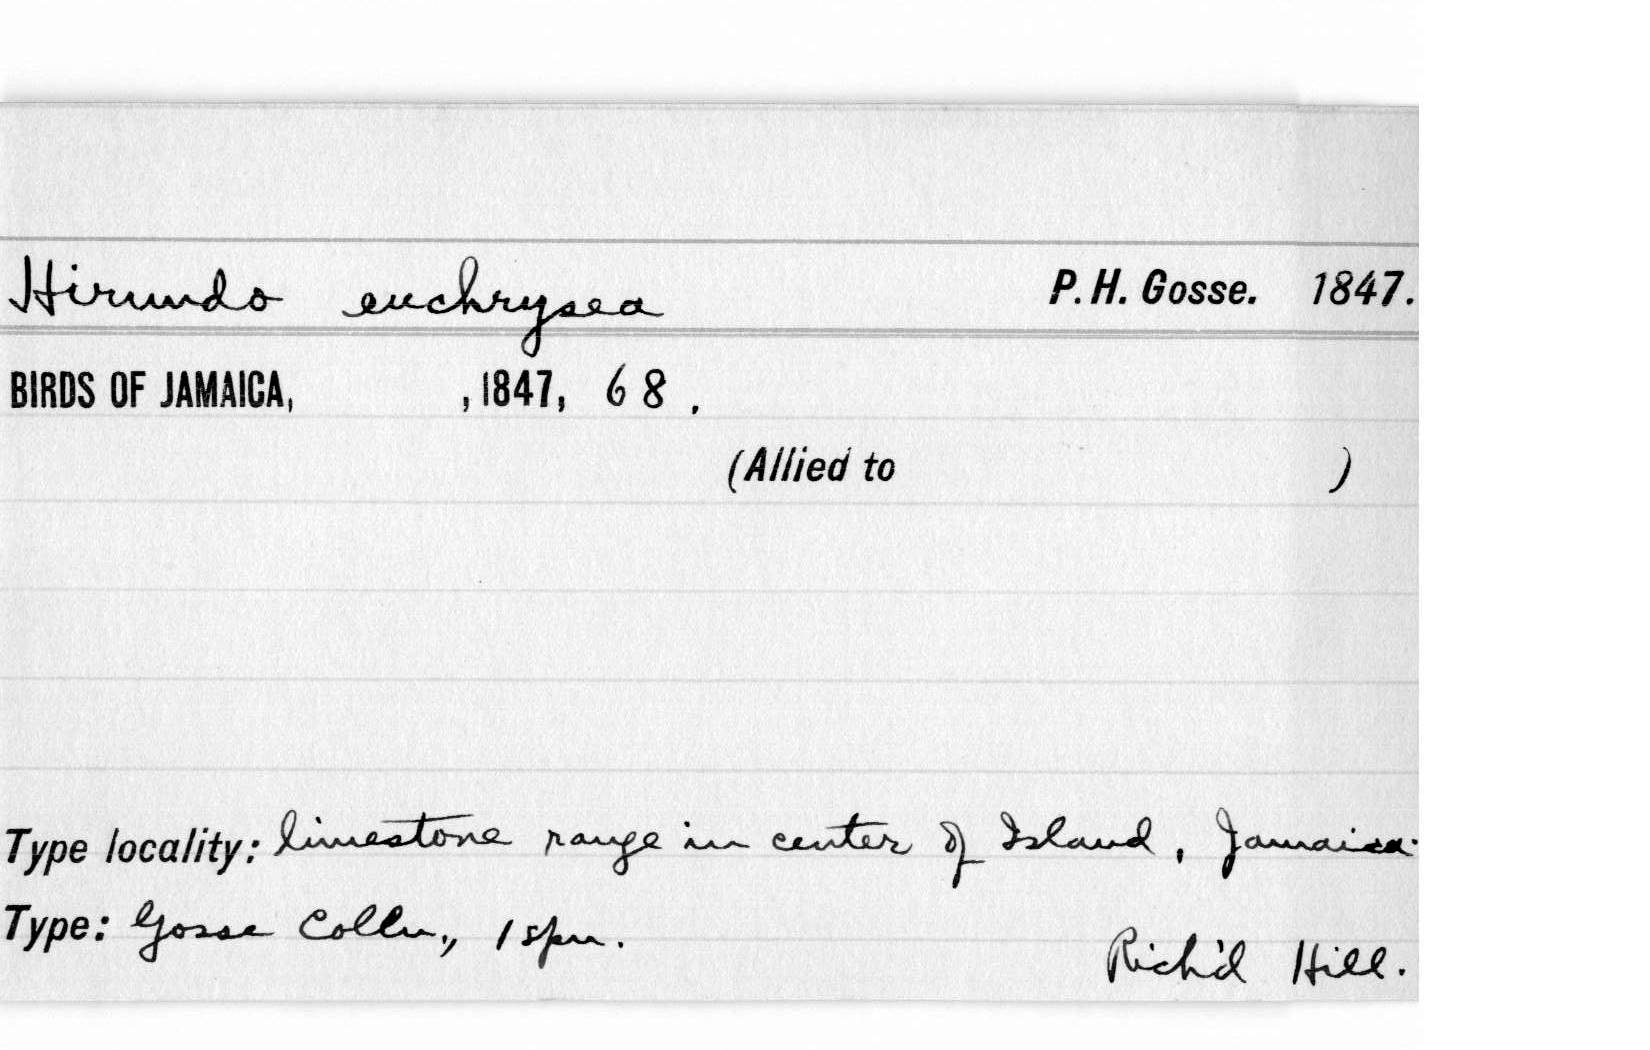 Hirundo euchrysea P. H. Gosse. 1847.
BIRDS OF JAMAICA, , 1847, 68 .
(Allied to )
Type locality: limestone range in center of Island, Jamaica.
Type: Gosse Colln., 1 spm.
Rich'd Hill.